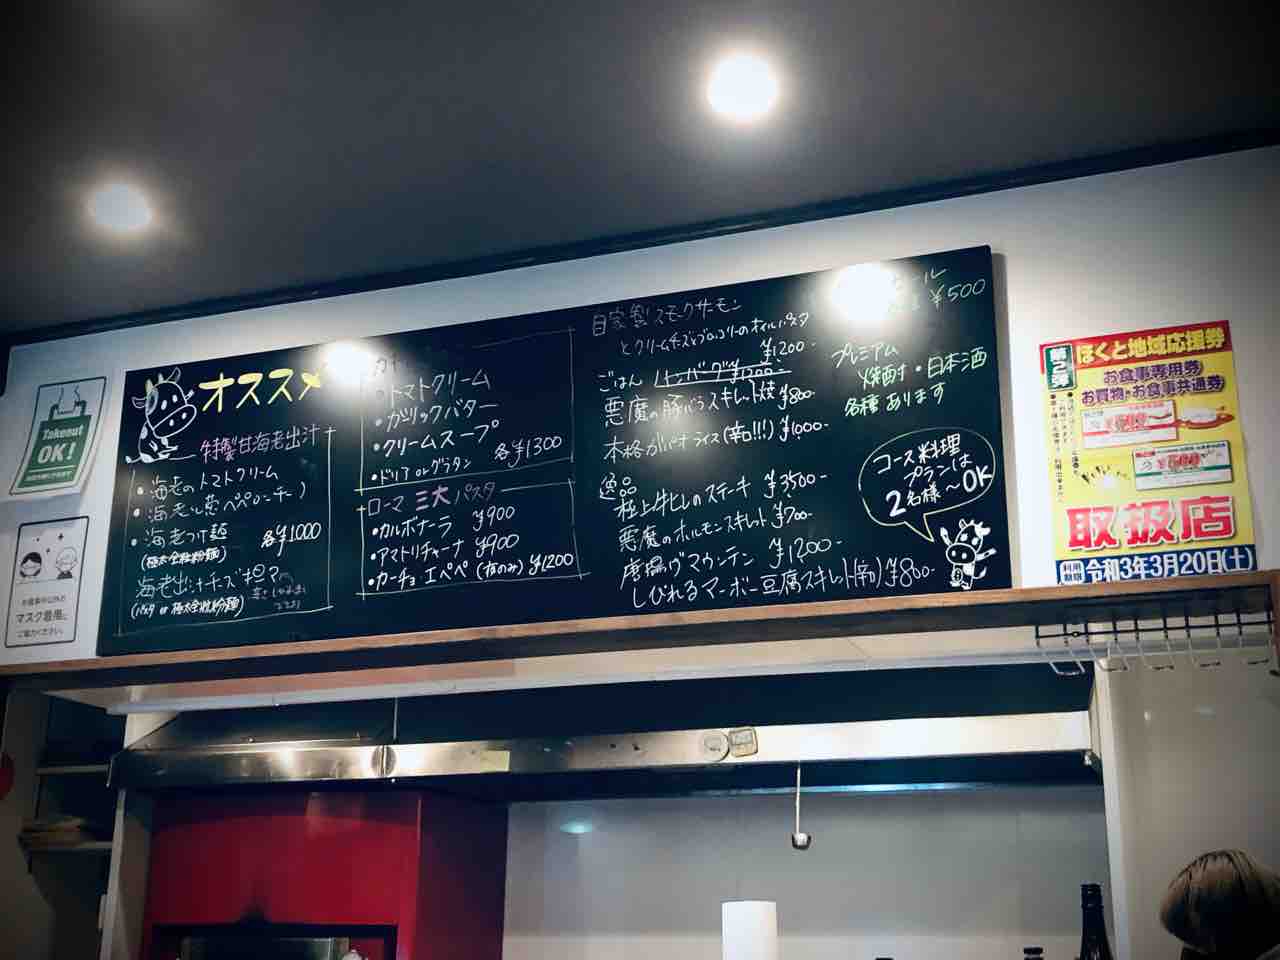 Takeout
OK!
お食事中以外の
マスク着用に
ご協力ください。
オススメ
特製甘海老出汁
・海老のトマトクリーム
・海老と葱ペペロンチーノ
・海老つけ麺
(極太全粒粉麺)
各¥1000
海老出汁チーズ担々
(パスタ or 極太全粒粉麺)
・トマトクリーム
・ガーリックバター
・クリームスープ
・ドリア orグラタン 各¥1300
ローマ 三大パスタ
・カルボナーラ ¥900
・アマトリチャーナ ¥900
・カーチョエペペ (夜のみ) ¥1200
自家製スモークサーモン
とクリームチーズとブロッコリーのオイルパスタ
¥1200-
ごはん ハンバーグ ¥1200-
悪魔の豚バラスキレット焼 ¥800-
本格ガパオライス(辛口!!!) ¥1000-
逸品
極上牛ヒレのステーキ ¥3500-
悪魔のホルモンスキレット ¥700-
唐揚ゲマウンテン ¥1200-
しびれるマーボー豆腐スキレット(辛) ¥800-
¥500
プレミアム
焼酎・日本酒
各種あります
コース料理
プランは
2名様〜OK
第2弾
ほくと地域応援券
お食事専用券
お買物・お食事共通券
取扱店
利用期限 令和3年3月20日(土)